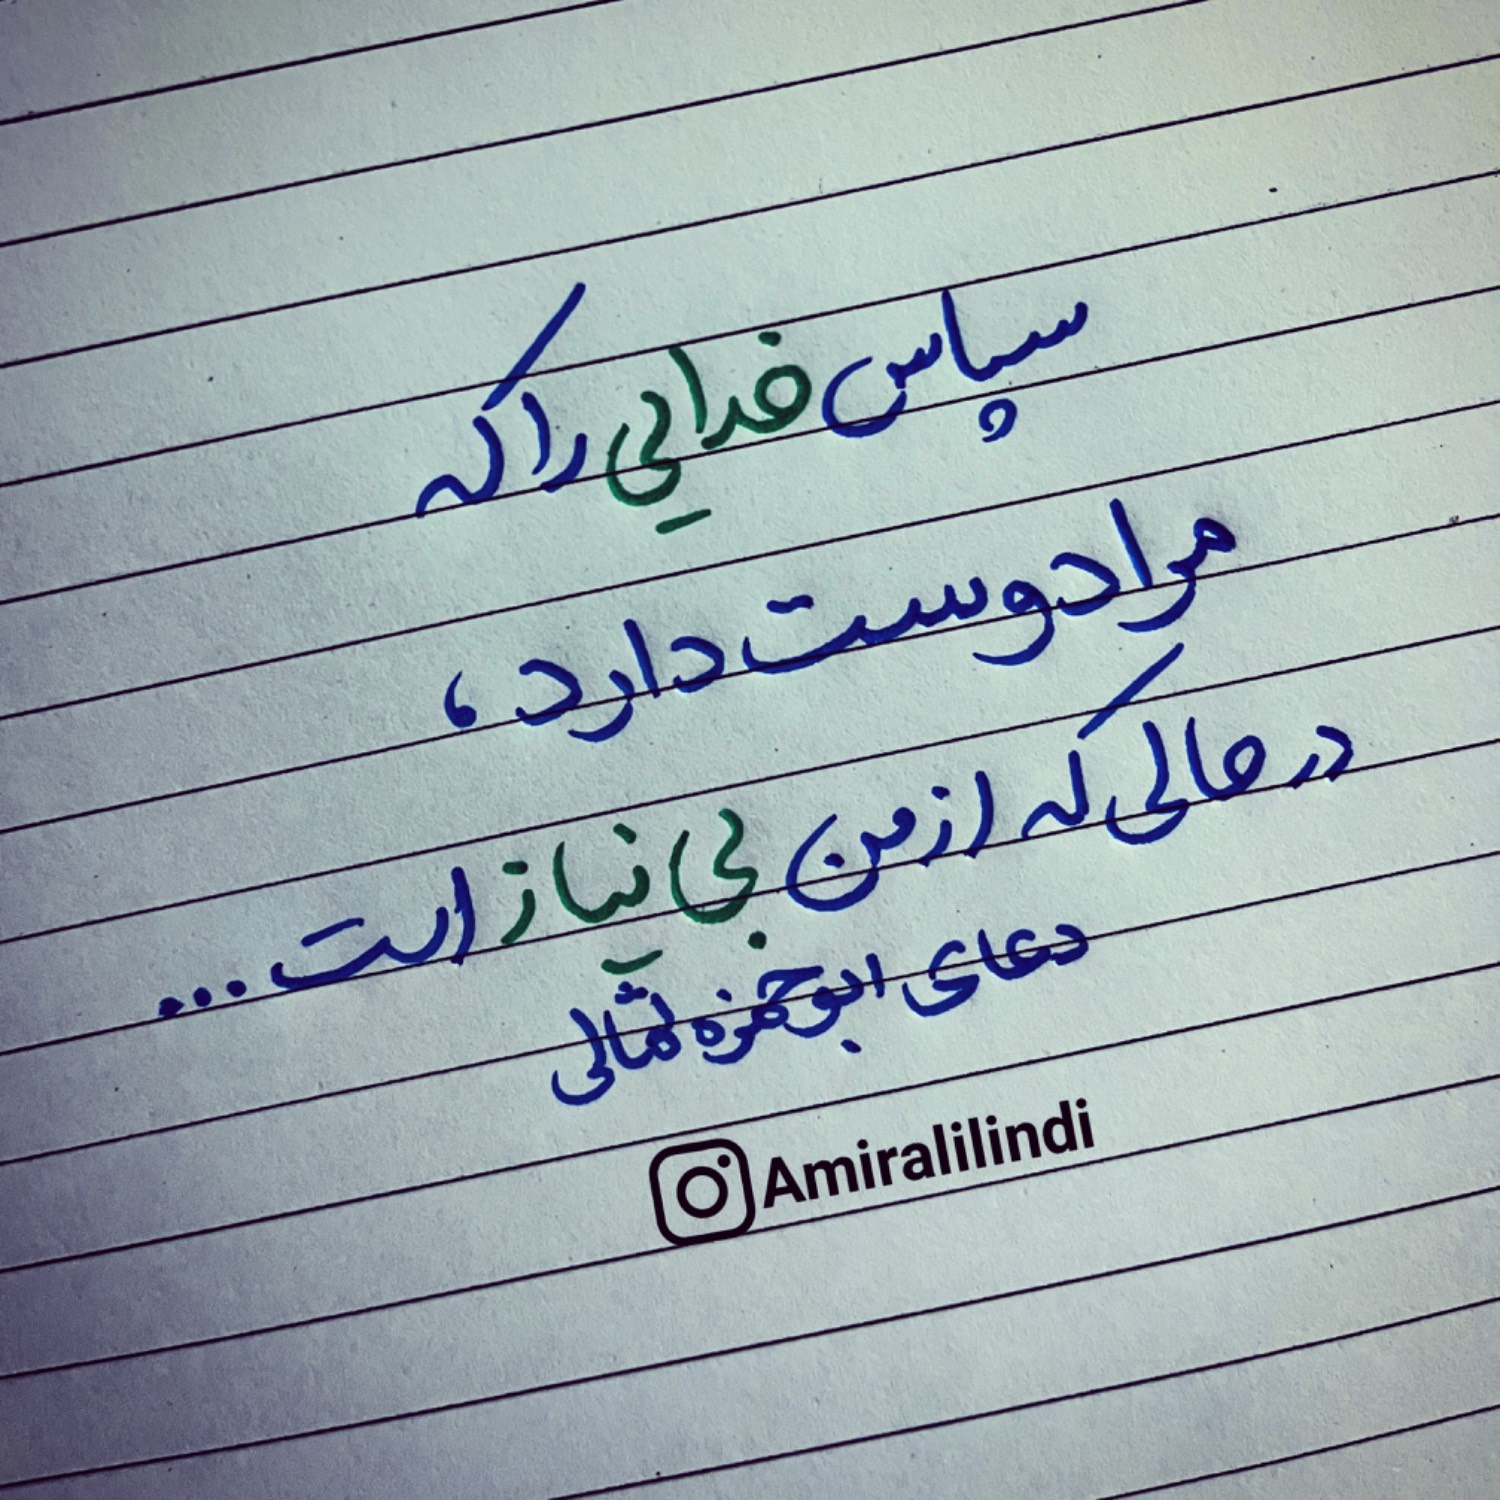 سپاس خدایی را که
مرا دوست دارد ،
در حالی که از من بی نیاز است ...
دعای ابوحمزه ثمالی
Amiralilindi